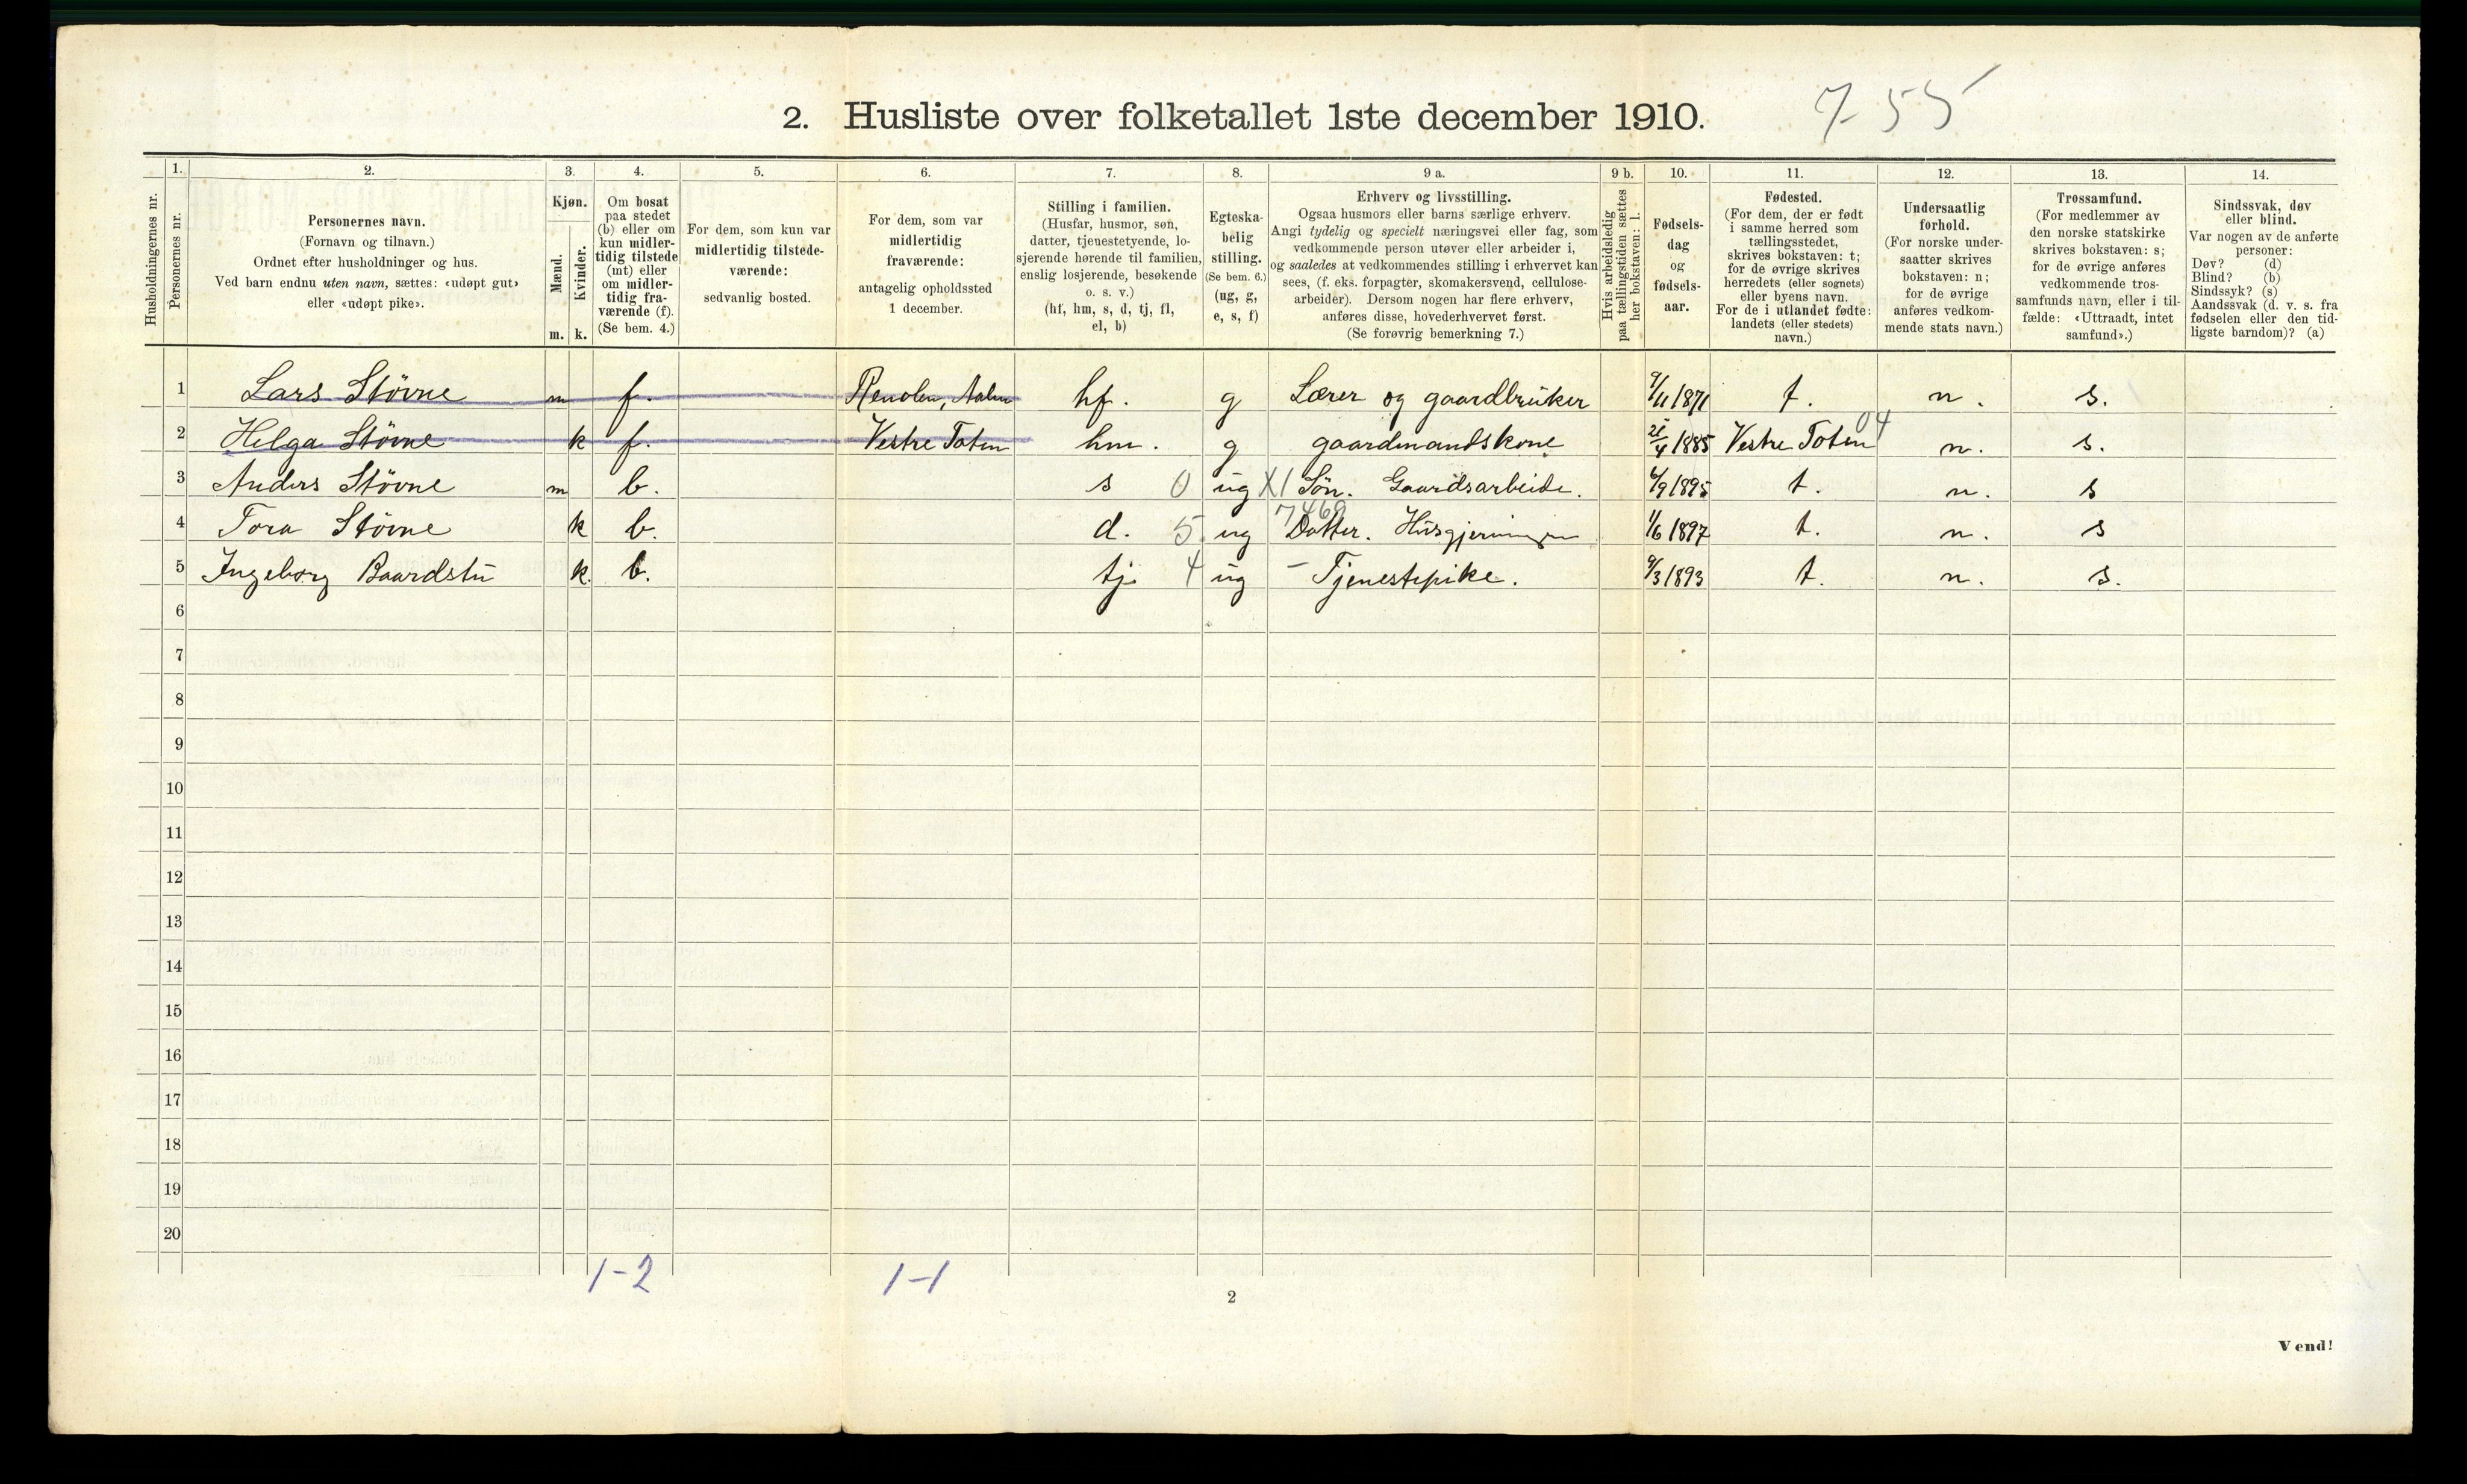 2. Husliste over folketallet 1ste december 1910. 755
1. 2. 3. 4. 5. 6. 7. 8. 9 a. 9 b. 10. 11. 12. 13. 14.
Husholdningernes nr.
Personernes nr.
Personernes navn.
(Fornavn og tilnavn.)
Ordnet efter husholdninger og hus.
Ved barn endnu uten navn, sættes: «udøpt gut»
eller «udøpt pike».
Kjøn.
Mænd.
Kvinder.
m. k.
Om bosat
paa stedet
(b) eller om
kun midler-
tidig tilstede
(mt) eller
om midler-
tidig fra-
værende (f).
(Se bem. 4.)
For dem, som kun var
midlertidig tilstede-
værende:
sedvanlig bosted.
For dem, som var
midlertidig
fraværende:
antagelig opholdssted
1 december.
Stilling i familien.
(Husfar, husmor, søn,
datter, tjenestetyende, lo-
sjerende hørende til familien,
enslig losjerende, besøkende
o. s. v.)
(hf, hm, s, d, tj, fl,
el, b)
Egteska-
belig
stilling.
(Se bem. 6.)
(ug, g,
e, s, f)
Erhverv og livsstilling.
Ogsaa husmors eller barns særlige erhverv.
Angi tydelig og specielt næringsvei eller fag, som
vedkommende person utøver eller arbeider i,
og saaledes at vedkommendes stilling i erhvervet kan
sees, (f. eks. forpagter, skomakersvend, cellulose-
arbeider). Dersom nogen har flere erhverv,
anføres disse, hovederhvervet først.
(Se forøvrig bemerkning 7.)
Hvis arbeidsledig
paa tællingstiden sættes
her bokstaven: l.
Fødsels-
dag
og
fødsels-
aar.
Fødested.
(For dem, der er født
i samme herred som
tællingsstedet,
skrives bokstaven: t;
for de øvrige skrives
herredets (eller sognets)
eller byens navn.
For de i utlandet fødte:
landets (eller stedets)
navn.)
Undersaatlig
forhold.
(For norske under-
saatter skrives
bokstaven: n;
for de øvrige
anføres vedkom-
mende stats navn.)
Trossamfund.
(For medlemmer av
den norske statskirke
skrives bokstaven: s;
for de øvrige anføres
vedkommende tros-
samfunds navn, eller i til-
fælde: «Uttraadt, intet
samfund».)
Sindssvak, døv
eller blind.
Var nogen av de anførte
personer:
Døv? (d)
Blind? (b)
Sindssyk? (s)
Aandssvak (d. v. s. fra
fødselen eller den tid-
ligste barndom)? (a)
1 Lars Stövne m f. hf. g Lærer og gaardbruker 9/11 1871 t. n. s.
2 Helga Stövne k f. Vestre Toten hm. g gaardmandskone 21/4 1885 Vestre Toten 04 n. s.
3 Anders Stövne m b. s 0 ug X1 Sön. Gaardsarbeide. 6/9 1895 t. n. s
7469
4 Tora Stövne k b. d. 5 ug Datter. Husgjerningen 1/6 1897 t. n. s
5 Ingeborg Baardstu k. b. tj. 4 ug – Tjenestepike. 9/3 1893 t. n. s.
6
7
8
9
10
11
12
13
14
15
16
17
18
19
20
1-2 1-1
2
Vend!